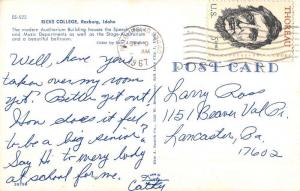 ES-522
RICKS COLLEGE, Rexburg, Idaho
The modern Auditorium Building houses the Speech, Drama
and Music Departments as well as the Stage, Auditorium
and a beautiful ballroom.
1967
THOREAU
U.S.
POST CARD
Well, have you
taken over my room
yet. Better get out!
How does it feel
to be a big senior?
Say Hi to every body
at school for me.
Cathy
Larry Ross
1151 Beaver Val. Pr.
Lancaster, Pa.
17602